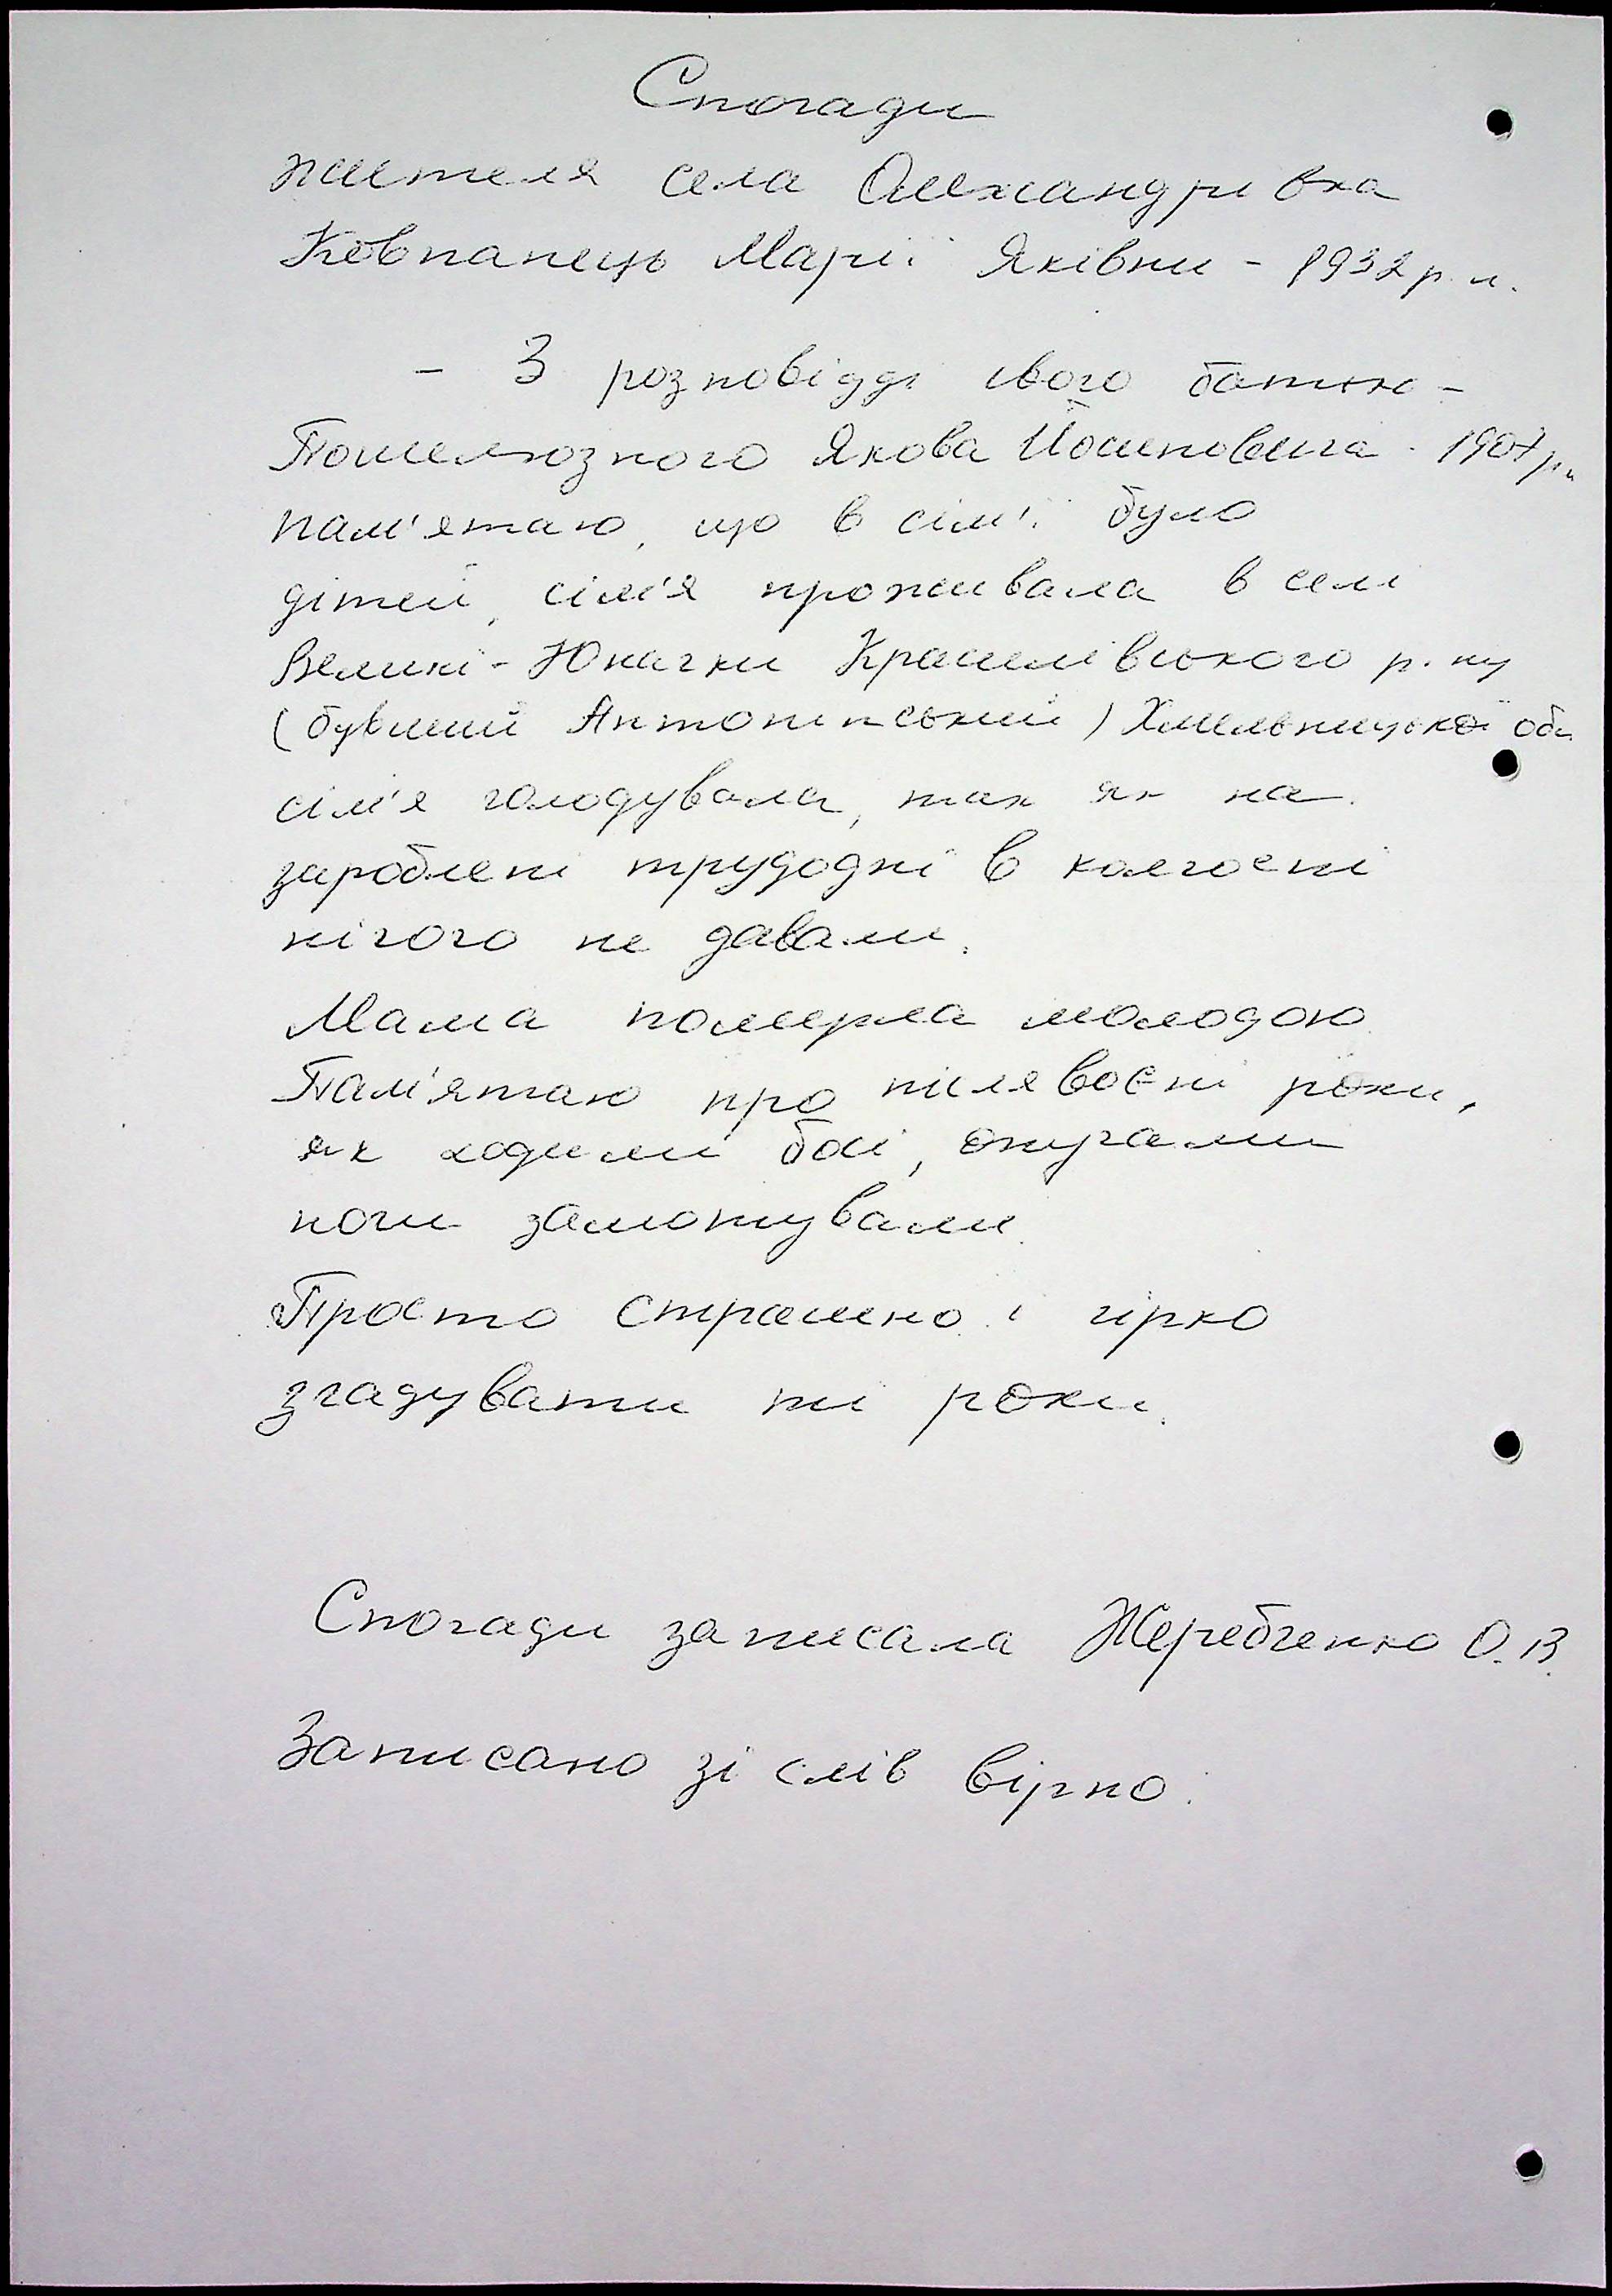 Спогади
жителя села Олександрівка
Ковпанець Марії Яківни - 1932 р. н.
- З розповідді свого батька -
Якова Йосиповича - 1907 р. н
пам'ятаю, що в сім'ї було
дітей, сім'я проживала в селі
Великі - Юначки Красилівського р. ну
(бувший Антонінський) Хмельницької обл
сім'я голодувала, так як на
зароблені трудодні в колгоспі
нічого не давали.
Мама померла молодою.
Пам'ятаю про післявоєні роки,
як ходили босі, онучами
ноги замотували.
Просто страшно і гірко
згадувати ті роки.
Спогади записала Жеребченко О. В.
Записано зі слів вірно.